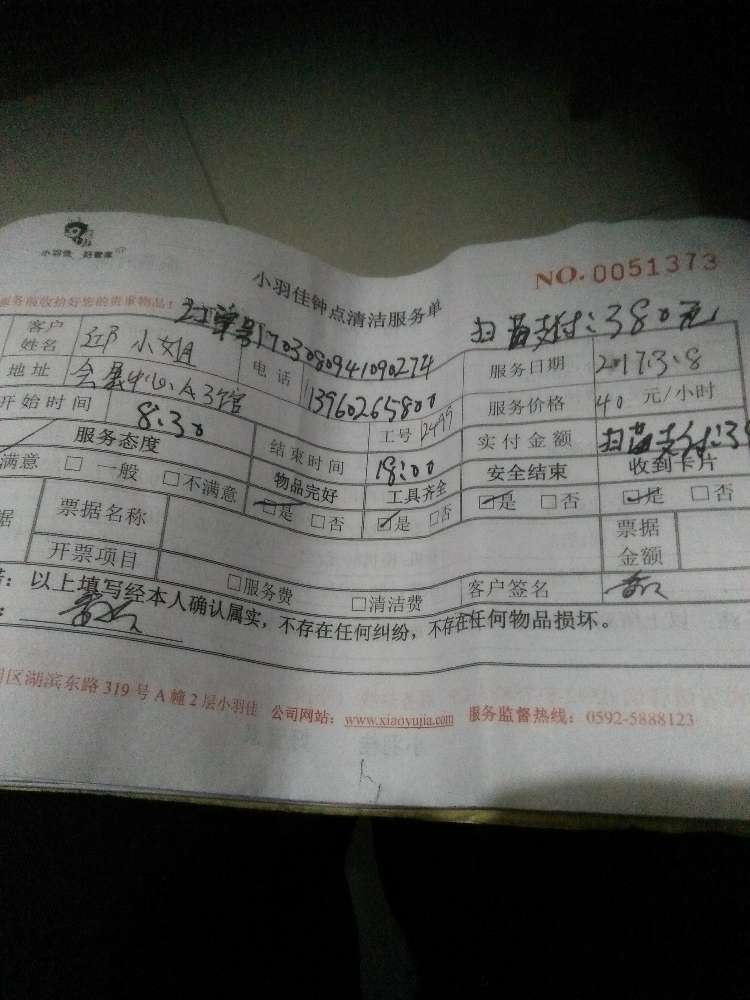 小羽佳 好管家
NO. 0051373
小羽佳钟点清洁服务单
服务前收拾好您的贵重物品！
订单号1703080941090274
扫描支付：380元
客户姓名 邱小姐 电话 13960265800 服务日期 2017.3.8
地址 会展中心A3馆 工号 2495 服务价格 40 元/小时
开始时间 8:30 结束时间 18:00 实付金额
服务态度 物品完好 工具齐全 安全结束 收到卡片
满意 □ 一般 □不满意 □是 □否 □是 □否 □是 □否 □是 □否
据 票据名称 票据金额
开票项目 □服务费 □清洁费 客户签名
：以上填写经本人确认属实，不存在任何纠纷，不存在任何物品损坏。
区湖滨东路 319 号 A 幢 2 层小羽佳 公司网站：www.xiaoyujia.com 服务监督热线：0592-5888123